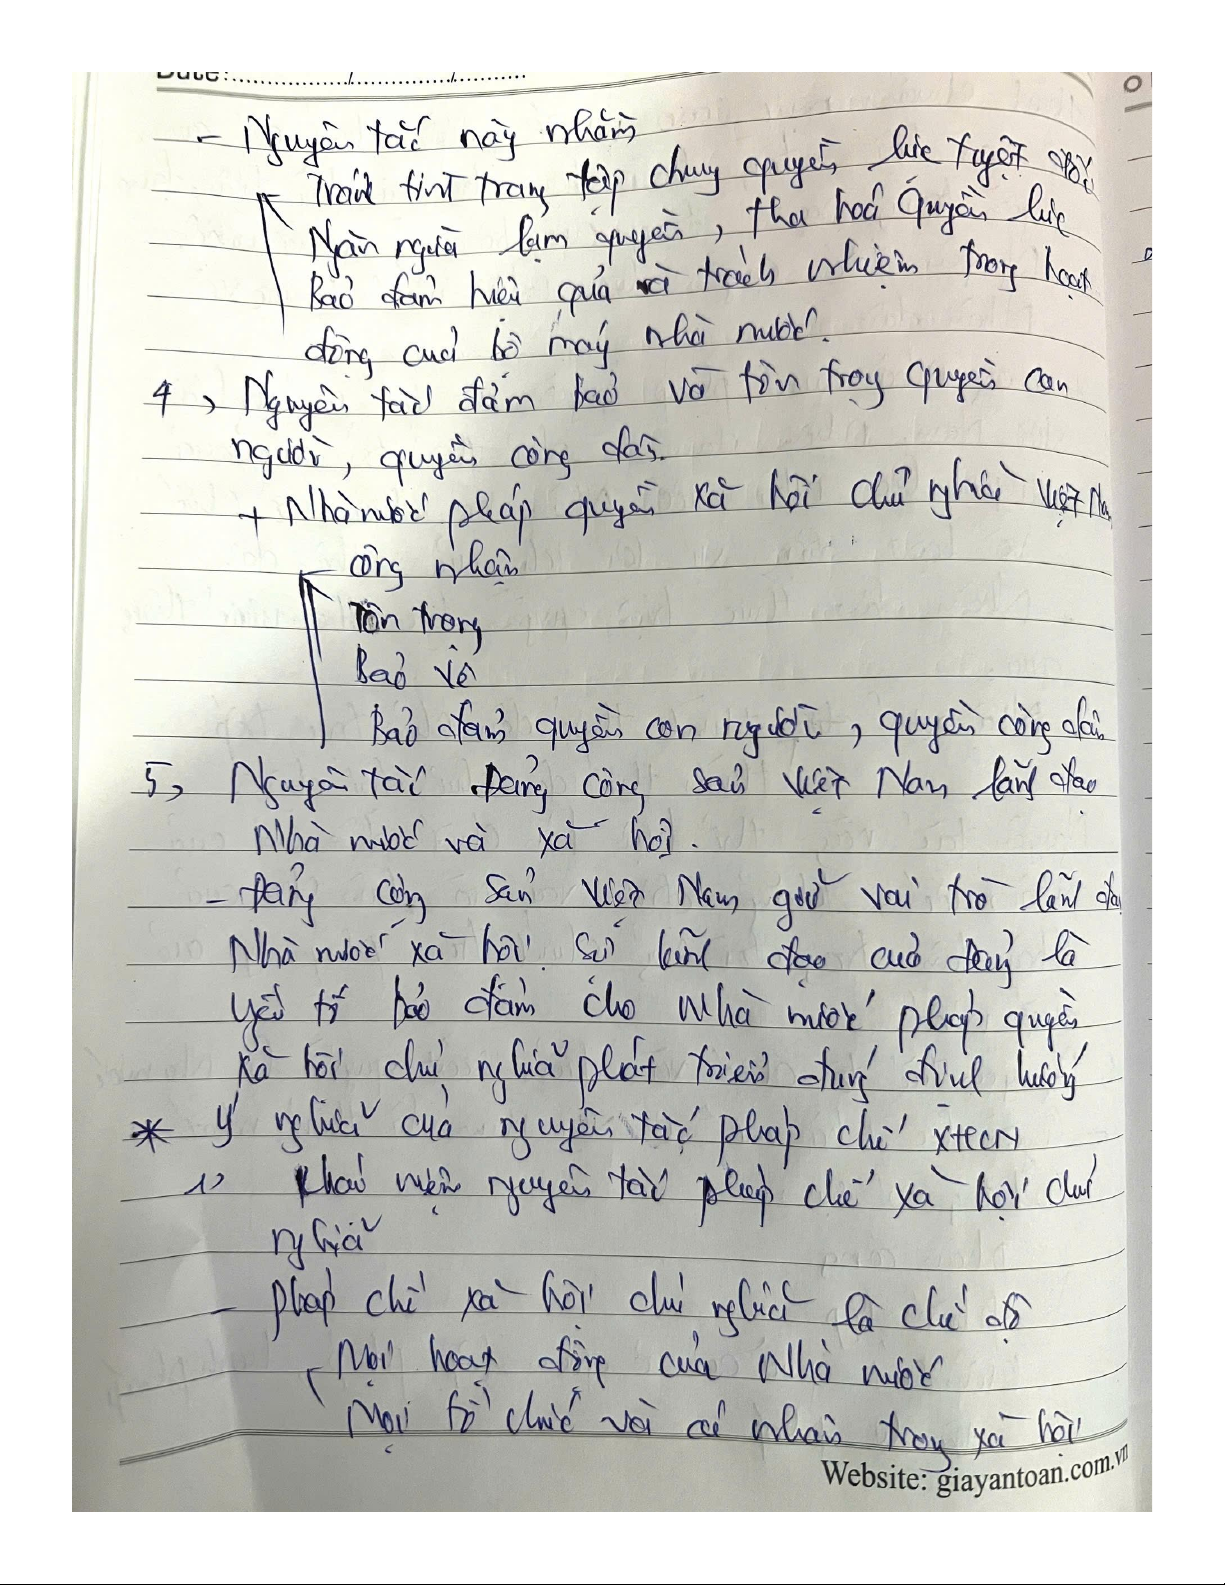 Date:............../............./..........
- Nguyên tắc này nhằm
Tránh tình trạng tập chung quyền lực tuyệt đối
Ngăn ngừa lạm quyền, tha hoá Quyền lực
Bảo đảm hiệu quả và trách nhiệm trong hoạt
động của bộ máy nhà nước.
4, Nguyên tắc đảm bảo và tôn trọng quyền con
người, quyền công dân.
+ Nhà nước pháp quyền xã hội chủ nghĩa Việt Na
công nhận
Tôn trọng
Bảo vệ
Bảo đảm quyền con người, quyền công dân
5, Nguyên tắc Đảng cộng sản Việt Nam lãnh đạo
Nhà nước và xã hội.
- Đảng cộng sản Việt Nam giữ vai trò lãnh đạ
Nhà nước xã hội. Sự lãnh đạo của đảng là
yếu tố bảo đảm cho Nhà nước pháp quyền
xã hội chủ nghĩa phát triển đúng định hướng
* Ý nghĩa của nguyên tắc pháp chế XHCN
1, Khái niệm nguyên tắc pháp chế xã hội chủ
nghĩa
- pháp chế xã hội chủ nghĩa là chế độ
Mọi hoạt động của Nhà nước
Mọi tổ chức và cá nhân trong xã hội
Website: giayantoan.com.vn